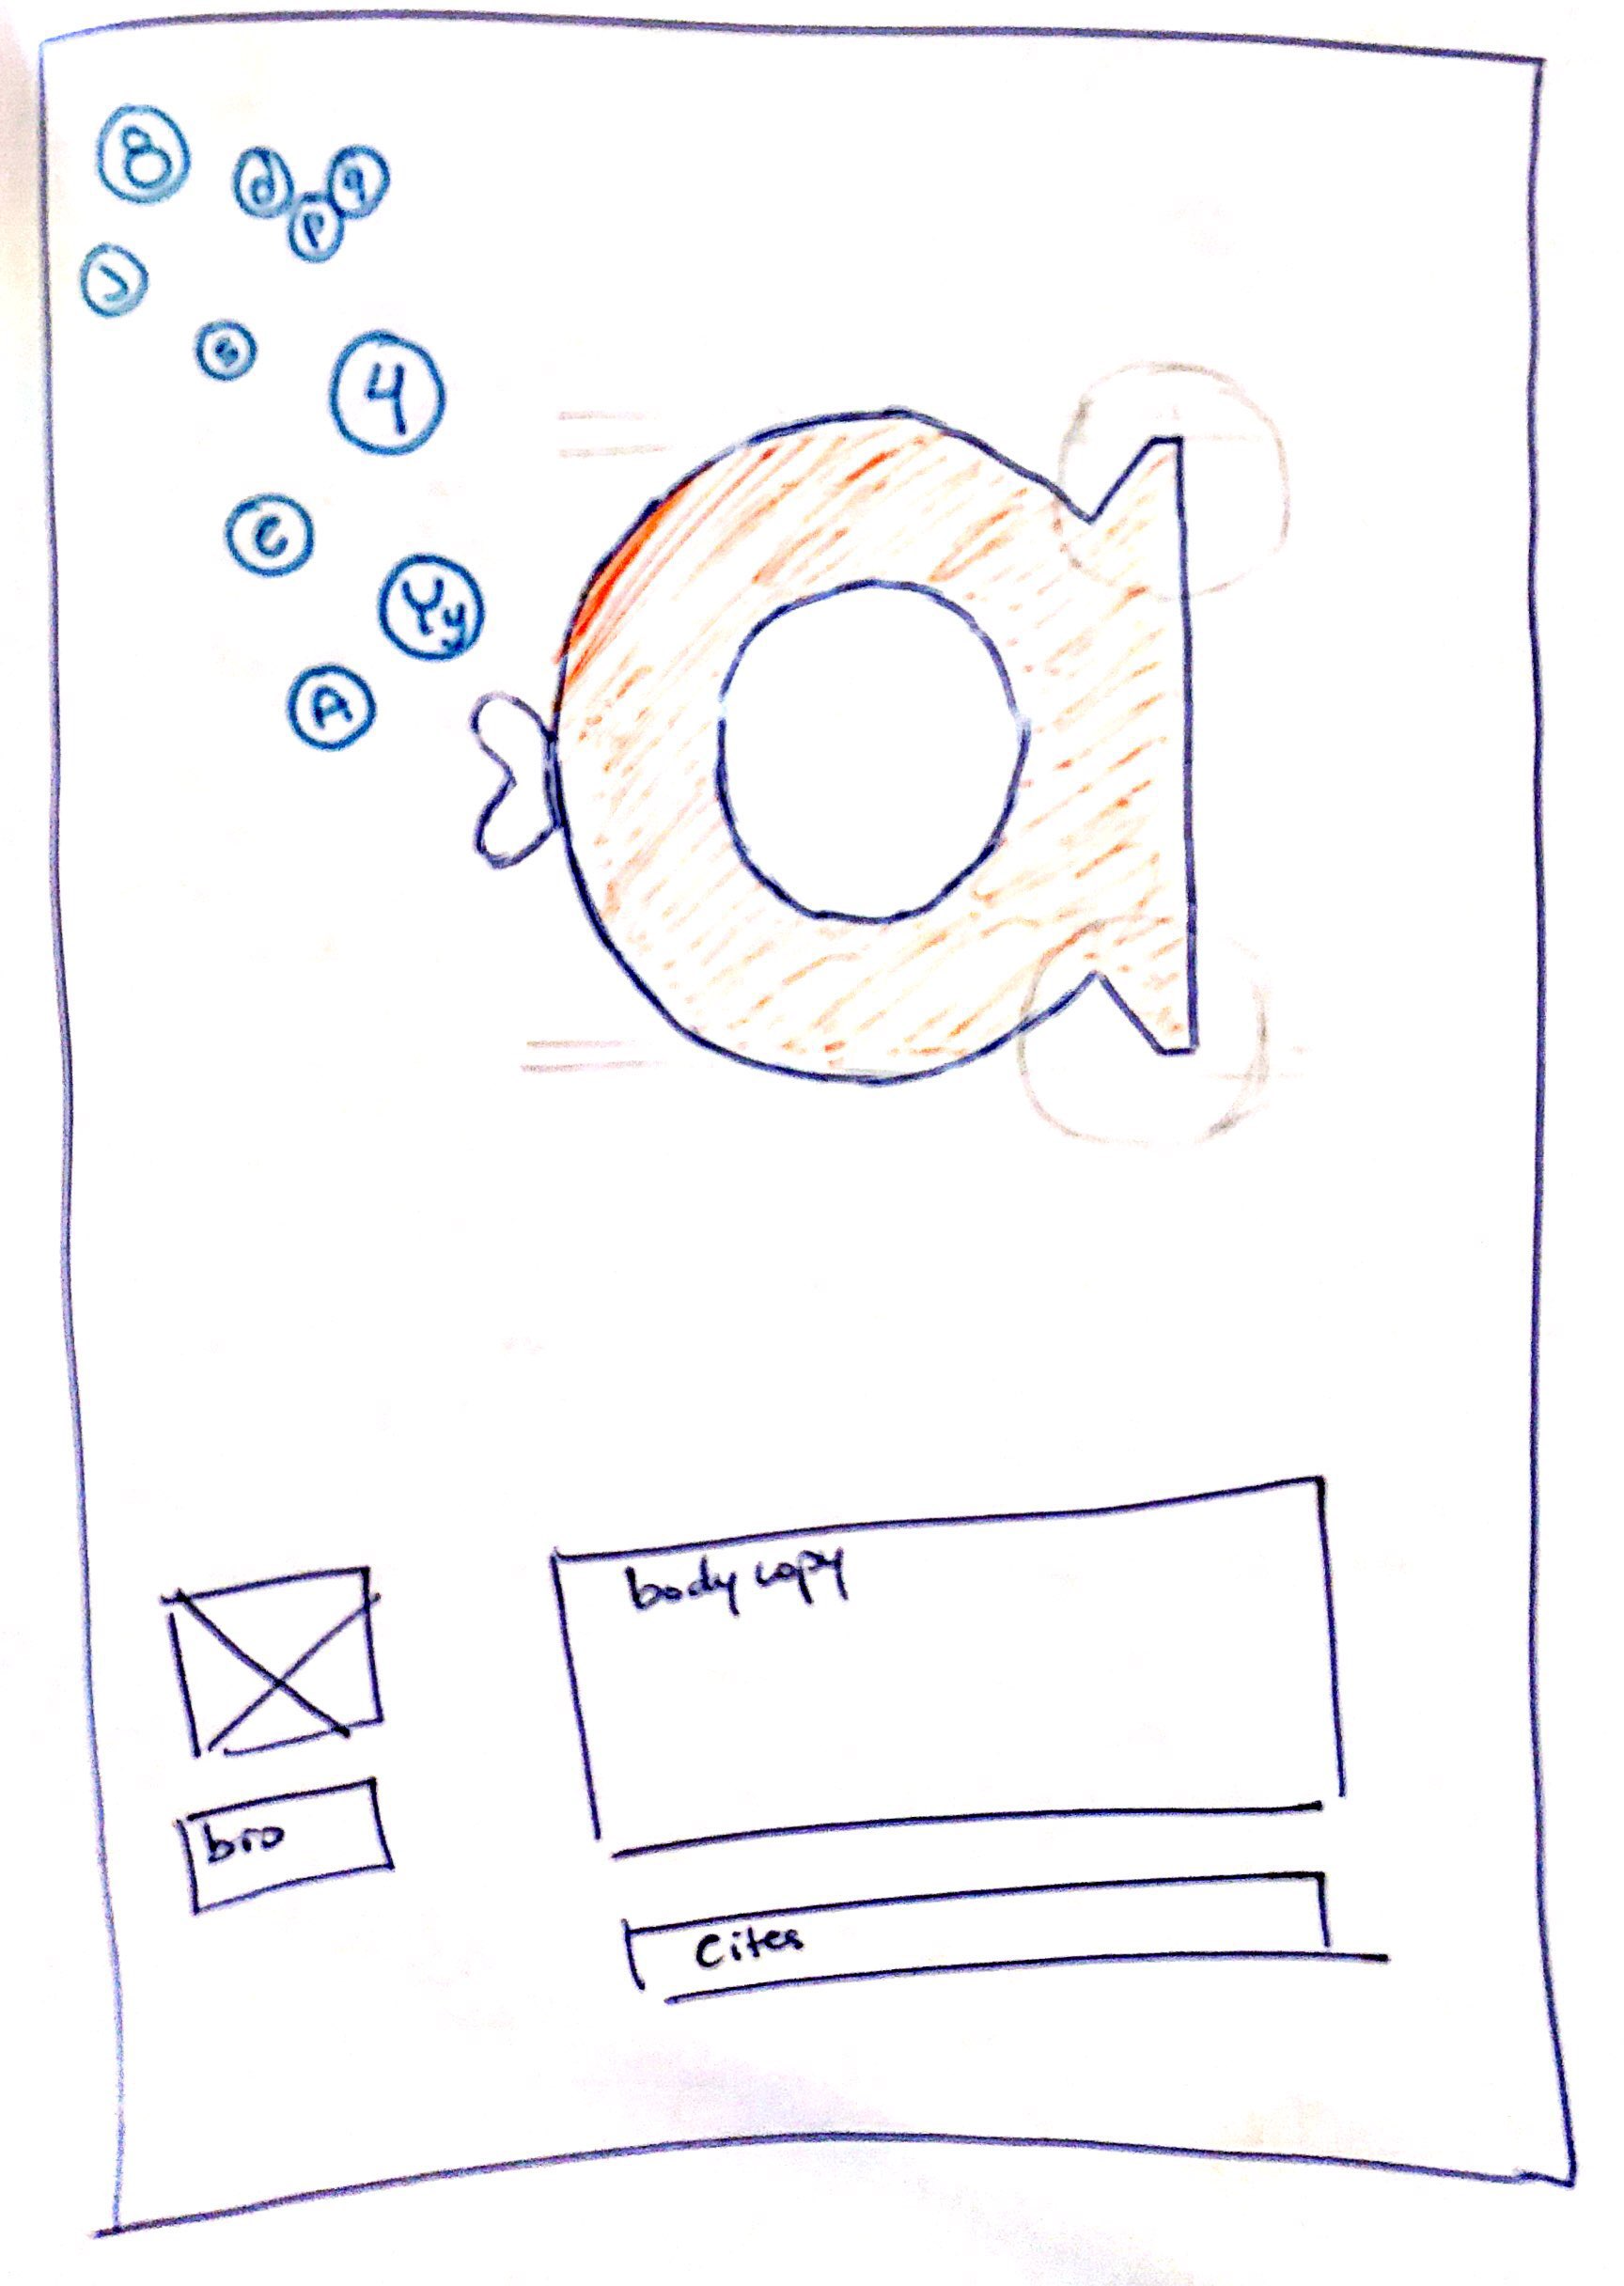 8
d
q
p
4
C
Yy
A
a
body copy
bro
Cites